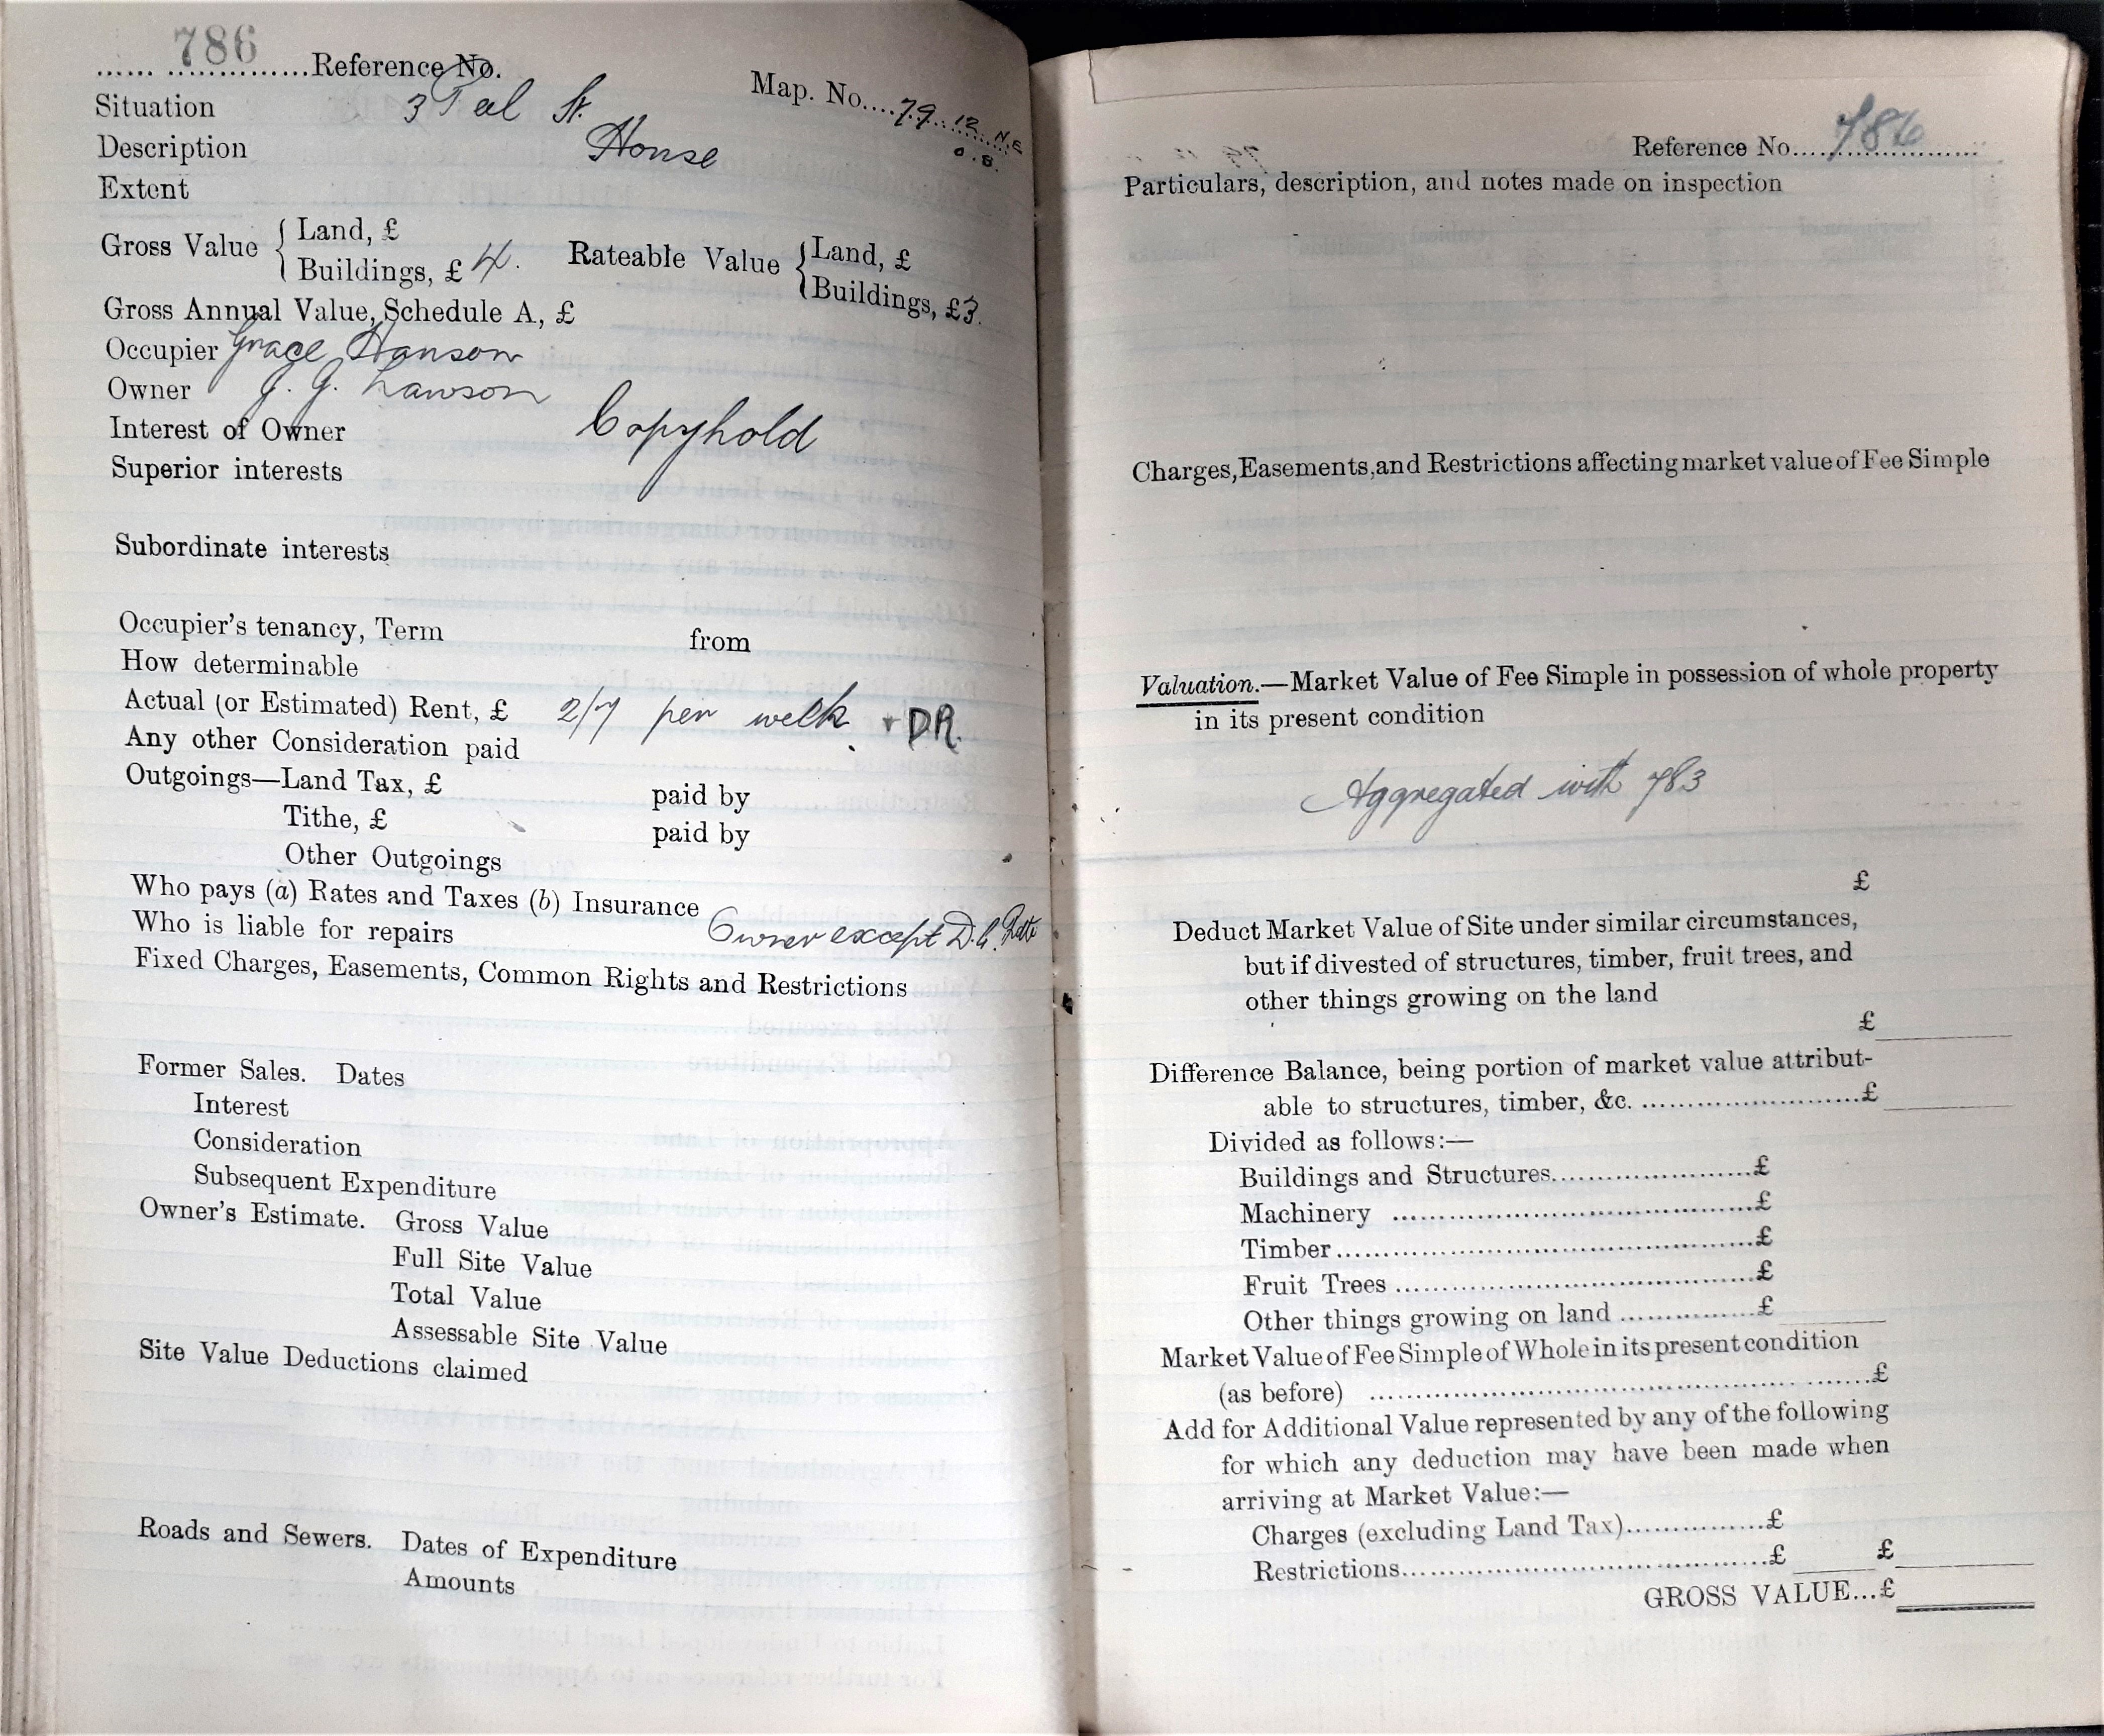 786
...... ..............Reference No.
Map. No....79 12 N.E
Situation 3 Peel St.
0.8.
Description House
Extent
Gross Value { Land, £
Buildings, £ 4.
Rateable Value { Land, £
Buildings, £3.
Gross Annual Value, Schedule A, £
Occupier Grace Hanson
Owner J. G. Lawson
Interest of Owner Copyhold
Superior interests
Subordinate interests
Occupier's tenancy, Term from
How determinable
Actual (or Estimated) Rent, £ 2/7 per week + DR.
Any other Consideration paid
Outgoings—Land Tax, £ paid by
Tithe, £ paid by
Other Outgoings
Who pays (a) Rates and Taxes (b) Insurance
Who is liable for repairs Owner except D.
Fixed Charges, Easements, Common Rights and Restrictions
Former Sales. Dates
Interest
Consideration
Subsequent Expenditure
Owner's Estimate. Gross Value
Full Site Value
Total Value
Assessable Site Value
Site Value Deductions claimed
Roads and Sewers. Dates of Expenditure
Amounts
Reference No. 786
Particulars, description, and notes made on inspection
Charges, Easements, and Restrictions affecting market value of Fee Simple
Valuation.—Market Value of Fee Simple in possession of whole property
in its present condition
Aggregated with 783
£
Deduct Market Value of Site under similar circumstances,
but if divested of structures, timber, fruit trees, and
other things growing on the land
£
Difference Balance, being portion of market value attribut-
able to structures, timber, &c. ..............................£
Divided as follows:—
Buildings and Structures.............................£
Machinery ..............................................£
Timber......................................................£
Fruit Trees ...............................................£
Other things growing on land .....................£
Market Value of Fee Simple of Whole in its present condition
(as before) ..............................................................£
Add for Additional Value represented by any of the following
for which any deduction may have been made when
arriving at Market Value:—
Charges (excluding Land Tax)....................£
Restrictions................................................£ £
GROSS VALUE...£